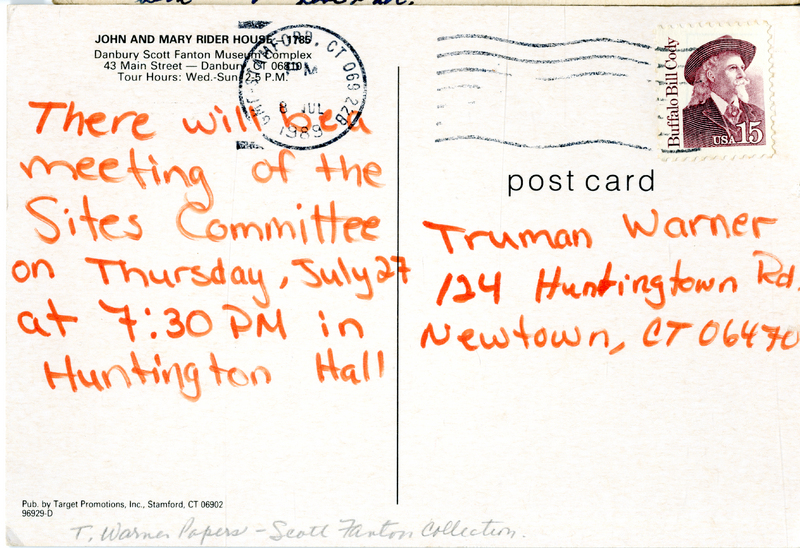 JOHN AND MARY RIDER HOUSE - 1785
Danbury Scott Fanton Museum Complex
43 Main Street — Danbury, CT 06810
Tour Hours: Wed.-Sun. 2-5 P.M.
There will be a
meeting of the
Sites Committee
on Thursday, July 27
at 7:30 PM in
Huntington Hall
GMF STAMFORD, CT 069 22B
PM
8 JUL
1989
Buffalo Bill Cody
USA 15
post card
Truman Warner
124 Huntingtown Rd.
Newtown, CT 06470
Pub. by Target Promotions, Inc., Stamford, CT 06902
96929-D
T. Warner Papers - Scott Fanton Collection.